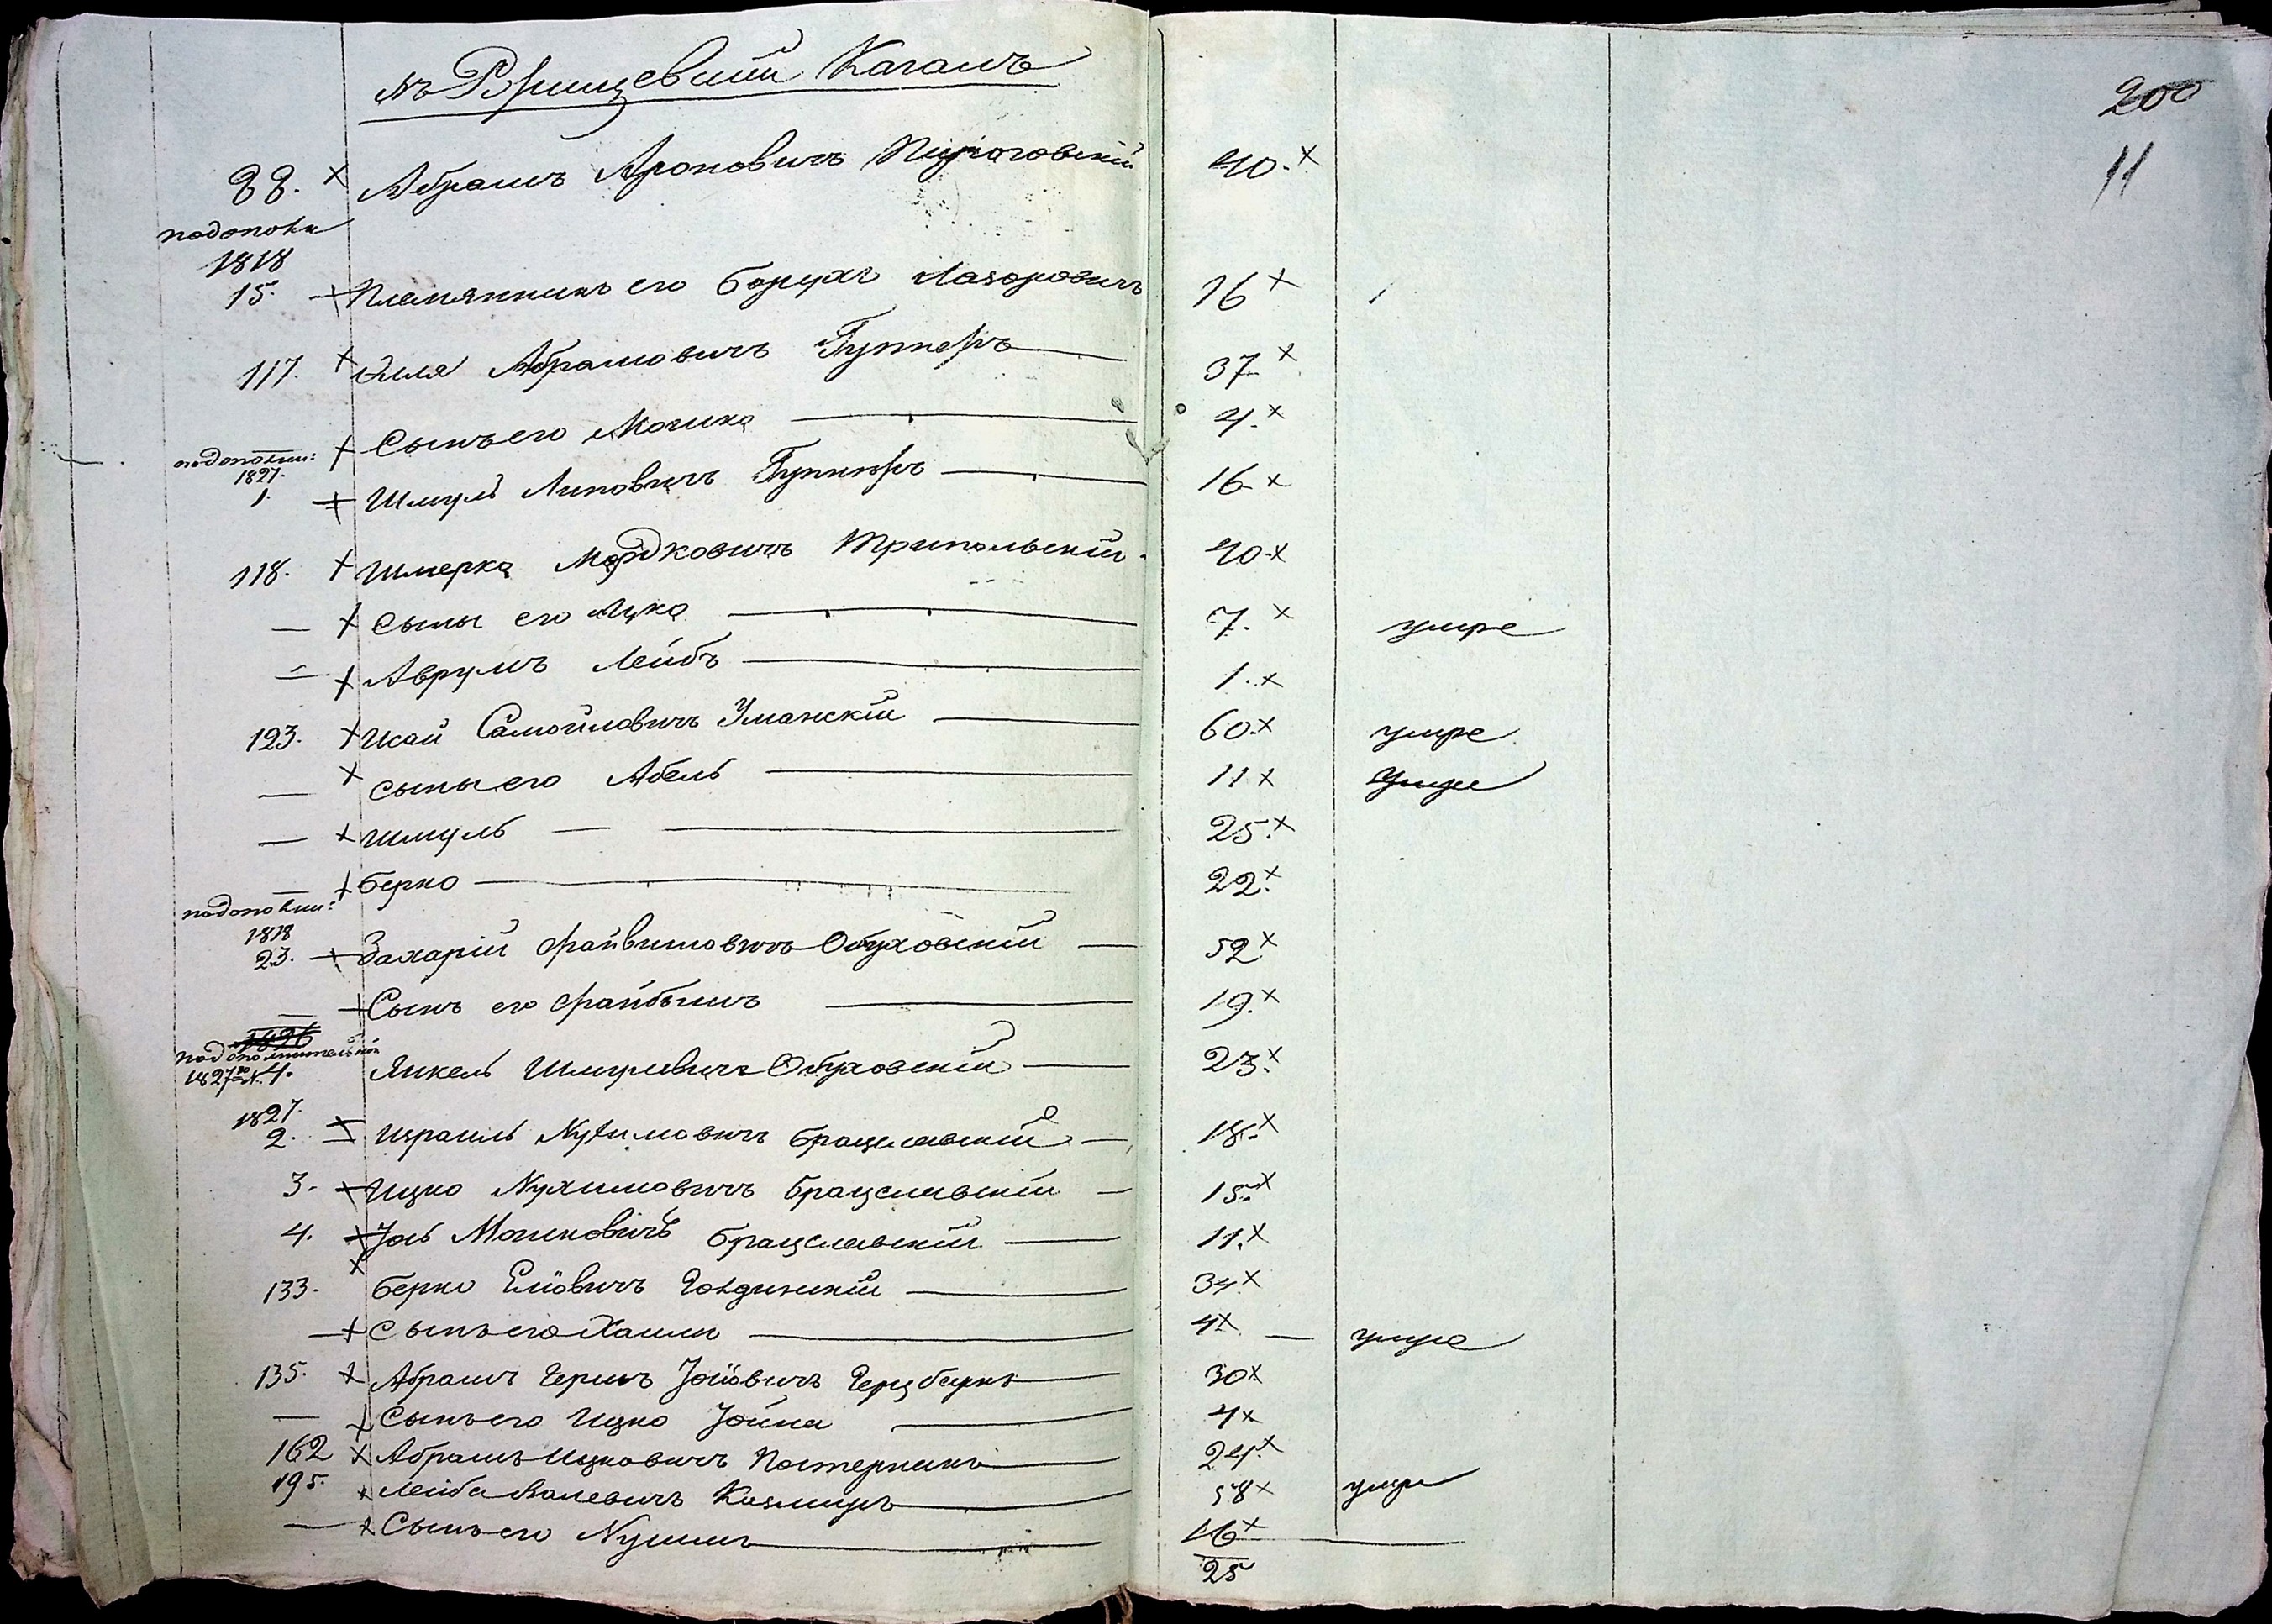 въ Ржищевскій Кагалъ
200
11
88. × Абрамъ Ароновичъ Пирятовскій 40. ×
по дополни
1818
15. Племянникъ его Борухъ Лазоровичъ 16 ×
117. × Эля Абрамовичъ Гуннеръ 37 ×
× Сынъ его Мошка 4. ×
по дополни:
1827.
1. Шмуль Липовичъ Гуннеръ 16 ×
118. × Шмерка Мордковичъ Трипольскій 40 ×
— × Сыны его Ицко 7. × умре
— × Аврумъ Лейбъ 1. ×
123. × Исай Самойловичъ Уманскій 60 × умре
— × сыны его Абель 11 × умре
— × Шмуль 25. ×
— × Берко 22. ×
по дополни:
1818
23. Захарій Файвишовичъ Обуховскій 52 ×
— Сынъ его Файбышъ 19. ×
1826
по дополнительной
1827го № 4. Янкель Шмулевичъ Обуховскій 23. ×
1827.
2. Израиль Нухимовичъ Брацлавскій 18. ×
3. Ицко Нухимовичъ Брацлавскій 15. ×
4. Іось Мошковичъ Брацлавскій 11. ×
133. × Берко Еліовичъ 34 ×
— × Сынъ его Хаимъ 4 × — умре
135. × Абрамъ Гершъ Герцберкъ 30 ×
— × Сынъ его Ицко Іойна 4 ×
162 × Абрамъ Ицковичъ Постернакъ 24. ×
195. × Лейба Козлинеръ 58 × умре
— × Сынъ его Нухимъ 16 ×
25